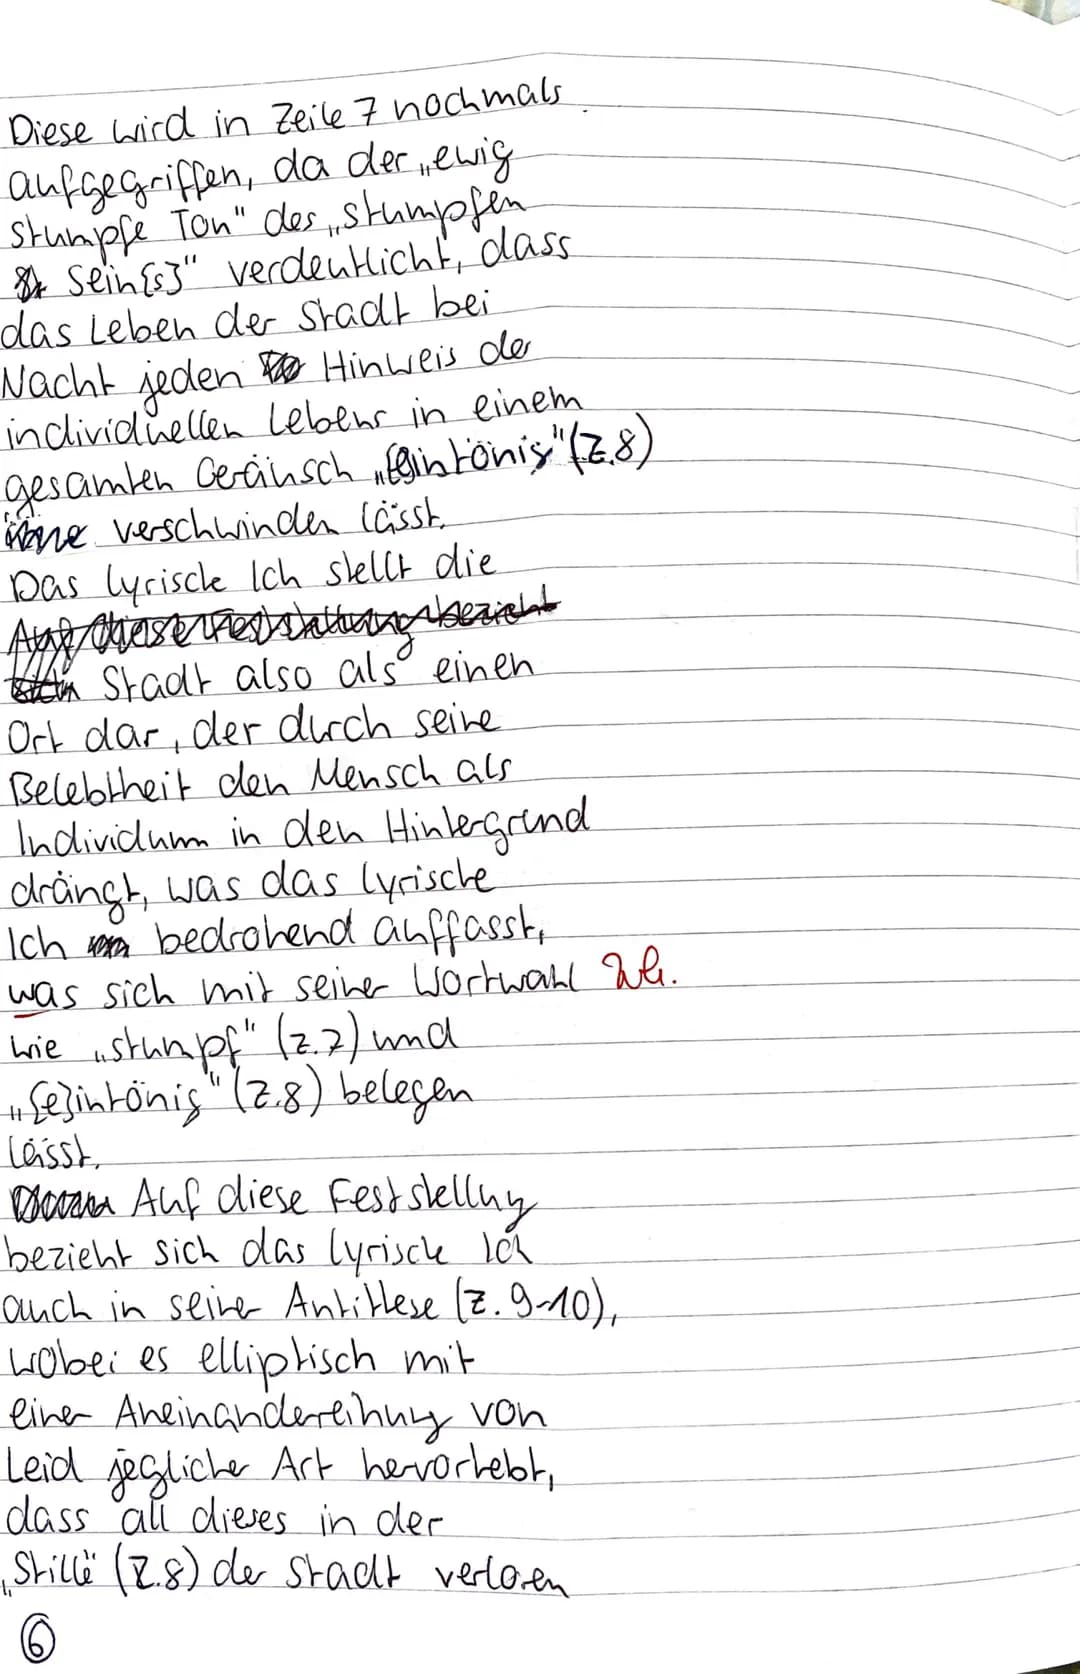 Diese wird in Zeile 7 nochmals
aufgegriffen, da der „ewig
stumpfe Ton" des „stumpfen
Sein[s]" verdeutlicht, dass
das Leben der Stadt bei
Nacht jeden Hinweis der
individuellen Lebens in einem
gesamten Geräusch „[e]intönig" (Z.8)
verschwinden lässt.
Das lyrische Ich stellt die
Auf diese Feststellung bezieht
sich Stadt also als einen
Ort dar, der durch seine
Belebtheit den Mensch als
Individum in den Hintergrund
drängt, was das lyrische
Ich bedrohend auffasst,
was sich mit seiner Wortwahl Wh.
wie „stumpf" (Z.7) und
„[e]intönig" (Z.8) belegen
lässt.
Auf diese Feststellung
bezieht sich das lyrische Ich
auch in seiner Antithese (Z. 9-10),
wobei es elliptisch mit
einer Aneinandereihung von
Leid jeglicher Art hervorhebt,
dass all dieses in der
„Stille" (Z.8) der Stadt verloren
6